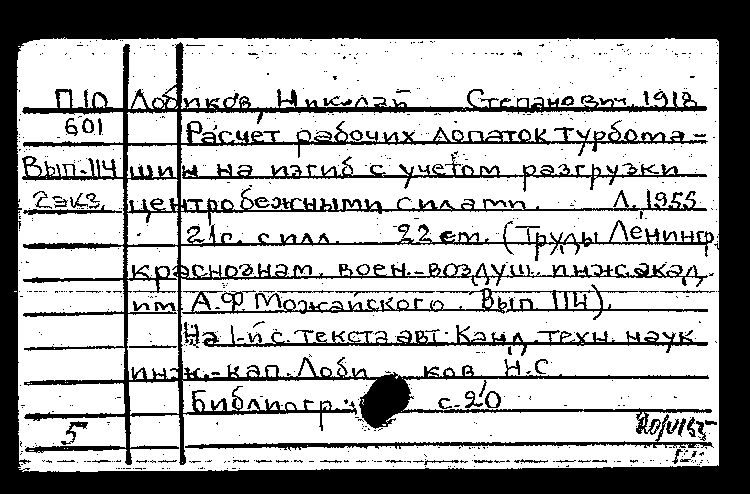 П.10 Лобиков, Николай Степанович, 1918
601 Расчет рабочих лопаток турбома-
Вып.114 шин на изгиб с учетом разгрузки
2экз. центробежными силами. Л., 1955
21с. с илл. 22 см. (Труды Ленингр.
краснознам. воен.-воздуш. инж. акад.
им. А.Ф. Можайского. Вып. 114).
На 1-й с. текста авт: Канд. техн. наук
инж.-кап. Лоби ков Н.С.
Библиогр.: с. 20
5